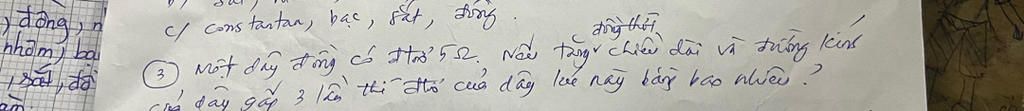 ) đồng, n
nhôm, bạ
, sắt, đồ
c/ constantan, bạc, sắt, đồng.
③ Một dây đồng có đtrở 5Ω. Nếu tăng đồng thời chiều dài và đường kính
của dây gấp 3 lần thì đtrở của dây lúc này bằng bao nhiêu?